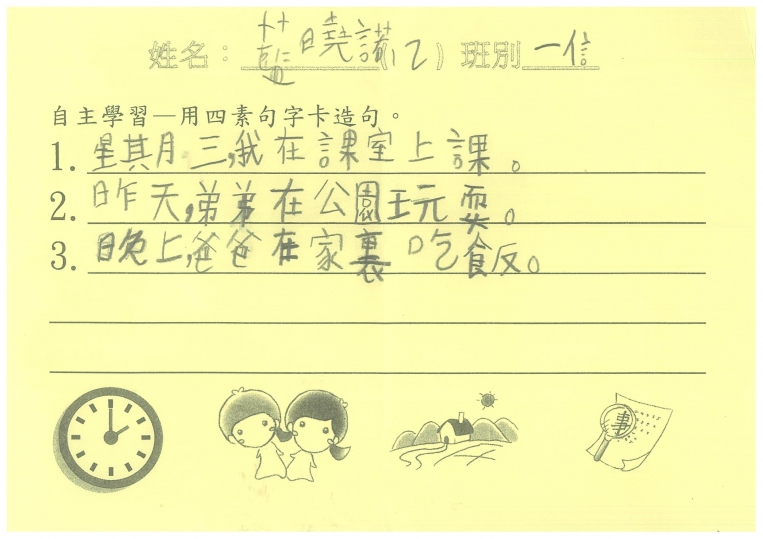 姓名：藍曉諾(12) 班別 一信
自主學習—用四素句字卡造句。
1. 星期三,我在課室上課。
2. 昨天,弟弟在公園玩耍。
3. 晚上,爸爸在家裏吃飯。
事